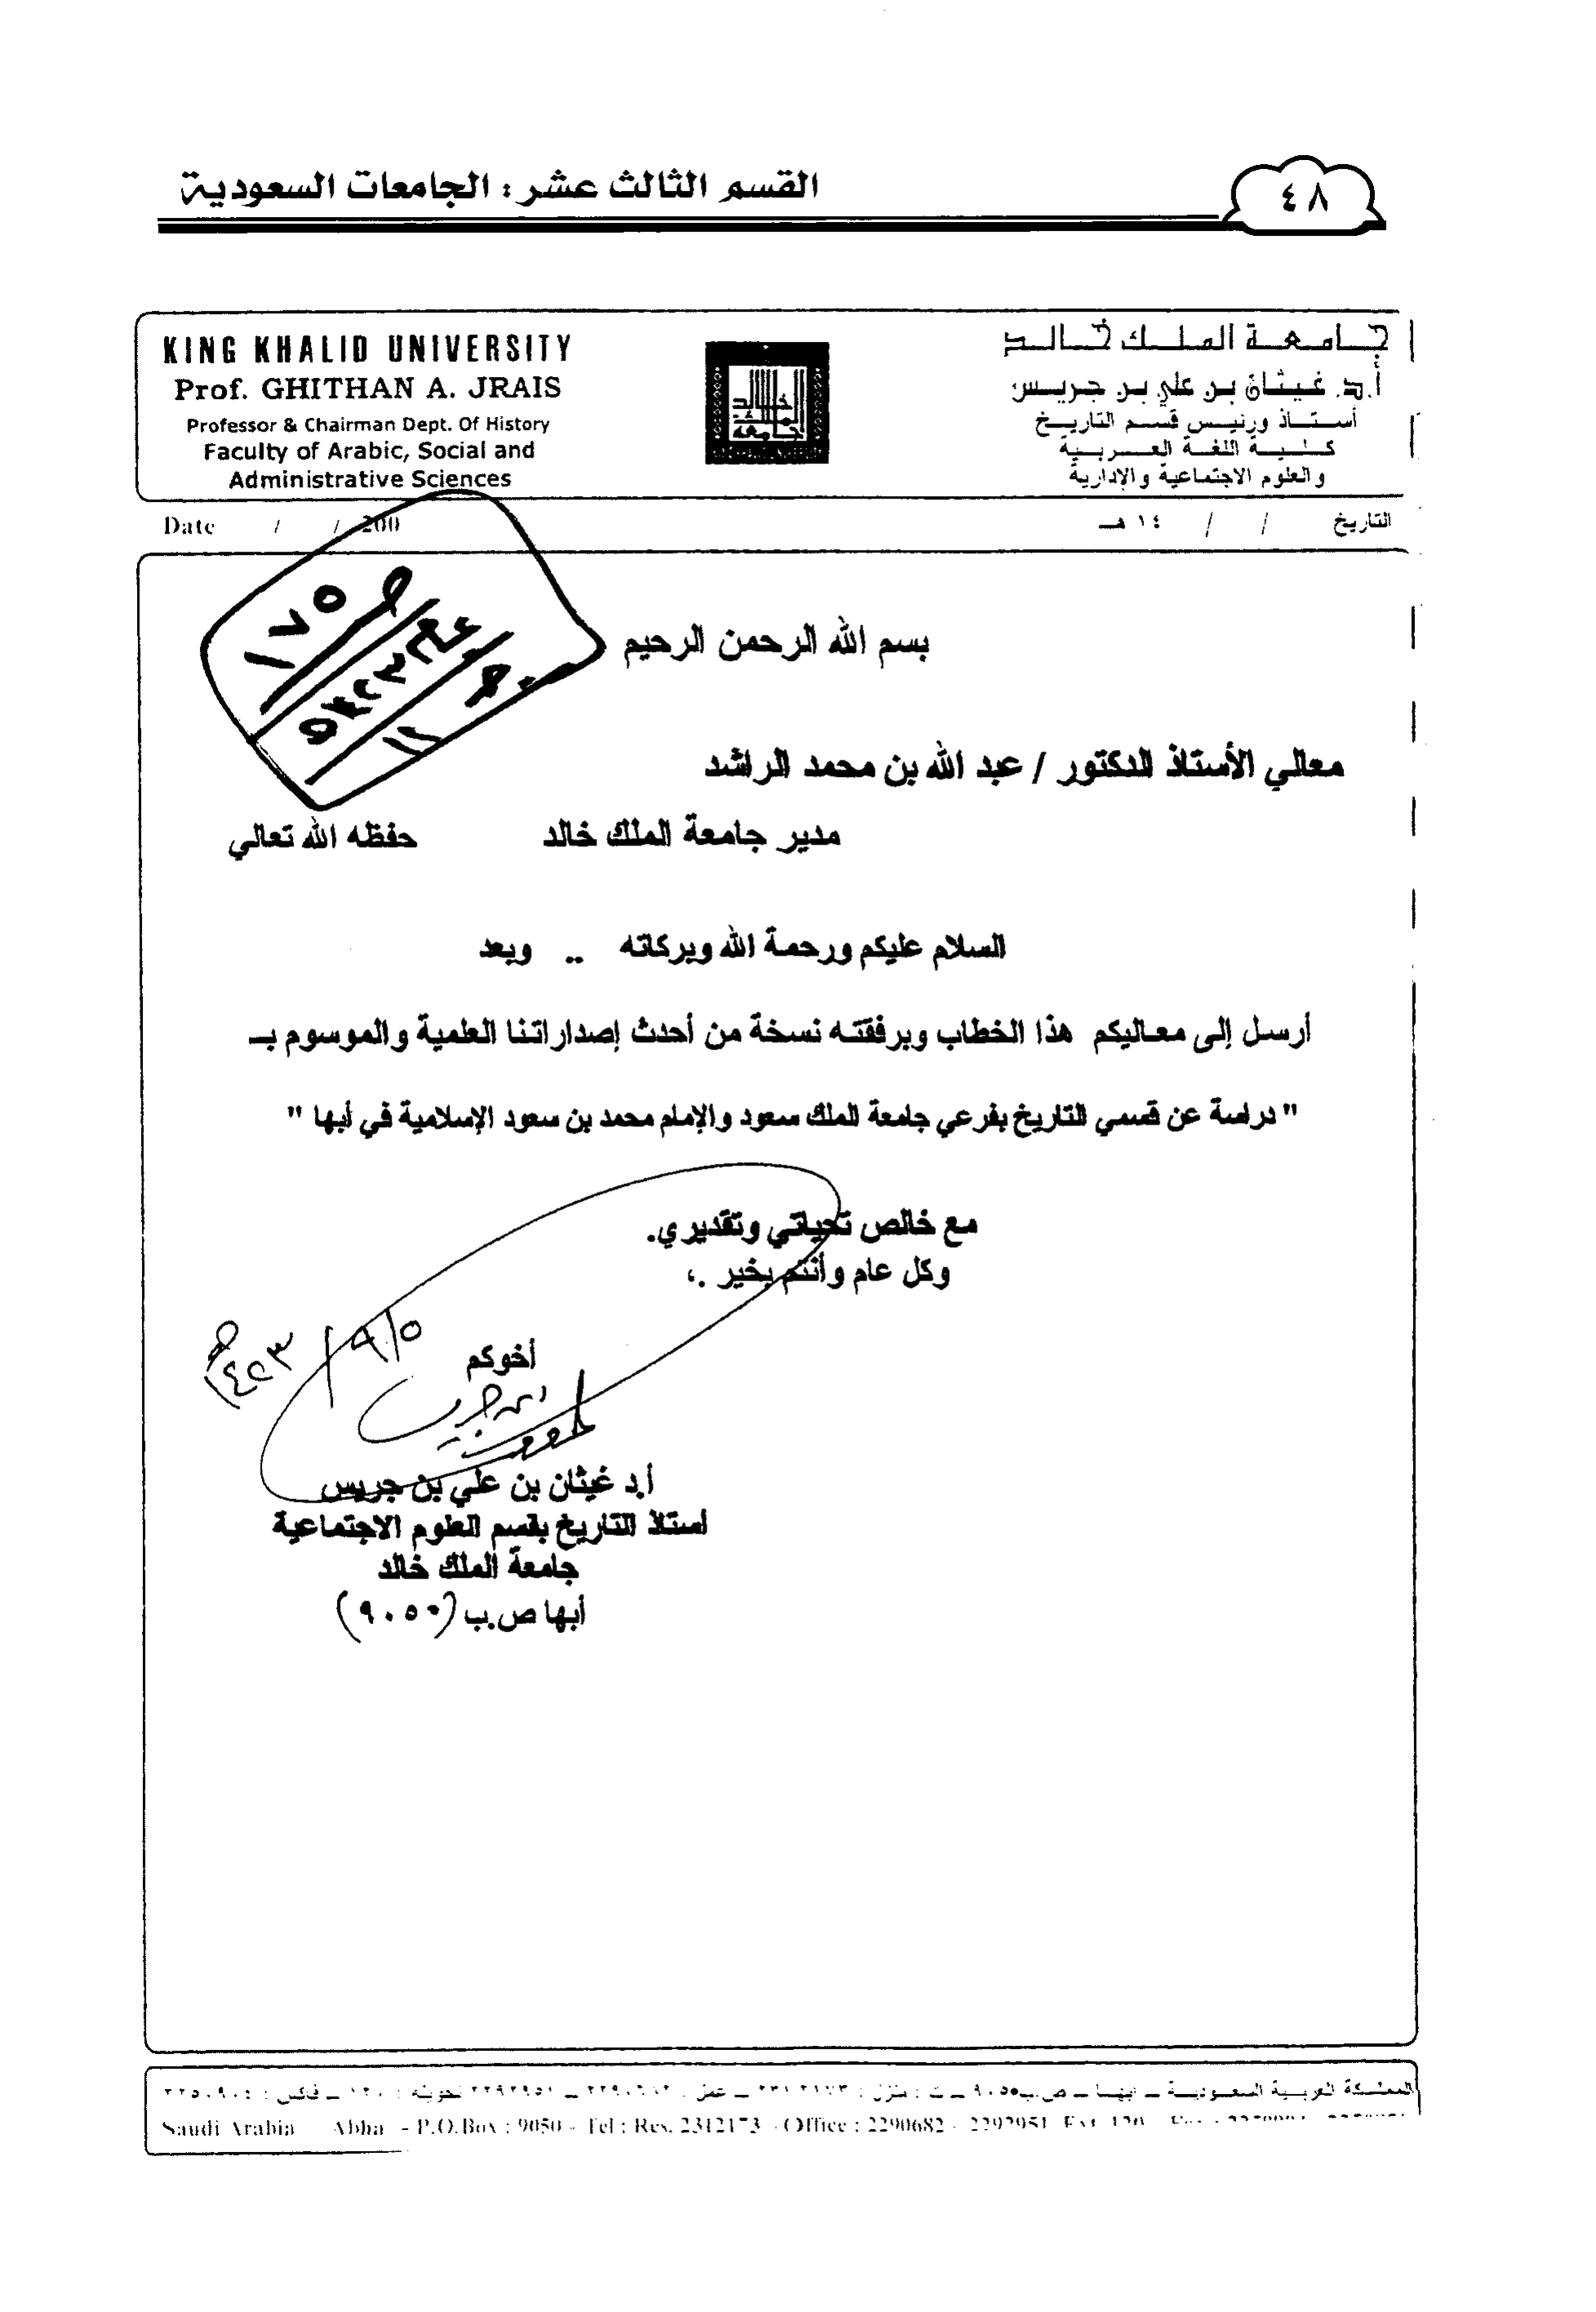 القسم الثالث عشر : الجامعات السعودية
٤٨
KING KHALID UNIVERSITY
Prof. GHITHAN A. JRAIS
Professor & Chairman Dept. Of History
Faculty of Arabic, Social and
Administrative Sciences
جامعة الملك خالد
جامعة الملك خالد
أ.د. غيثان بن علي بن جريس
أستاذ ورئيس قسم التاريخ
كلية اللغة العربية
والعلوم الاجتماعية والإدارية
Date / / 200
التاريخ / / ١٤ هـ
١٧٥
بسم الله الرحمن الرحيم
معالي الأستاذ الدكتور / عبد الله بن محمد الراشد
مدير جامعة الملك خالد حفظه الله تعالي
السلام عليكم ورحمة الله وبركاته .. وبعد
أرسل إلى معاليكم هذا الخطاب وبرفقته نسخة من أحدث إصداراتنا العلمية والموسوم بـ
" دراسة عن قسمي التاريخ بفرعي جامعة الملك سعود والإمام محمد بن سعود الإسلامية في أبها "
مع خالص تحياتي وتقديري.
وكل عام وأنتم بخير .،
٥/٩/١٤٢٣هـ
أخوكم
أ.د غيثان بن علي بن جريس
استاذ التاريخ بقسم العلوم الاجتماعية
جامعة الملك خالد
أبها ص.ب (٩٠٥٠)
المملكة العربية السعودية ــ أبهـا ــ ص.ب ٩٠٥٠ ــ ت : منزل : ٢٣١٢١٧٣ ــ عمل : ٢٢٩٠٦٨٢ ــ ٢٢٩٢٩٥١ تحويله : ١٢٠ ــ فاكس :
Saudi Arabia Abha - P.O.Box : 9050 - Tel : Res. 2312173 - Office : 2290682 - 2292951 Ext. 120